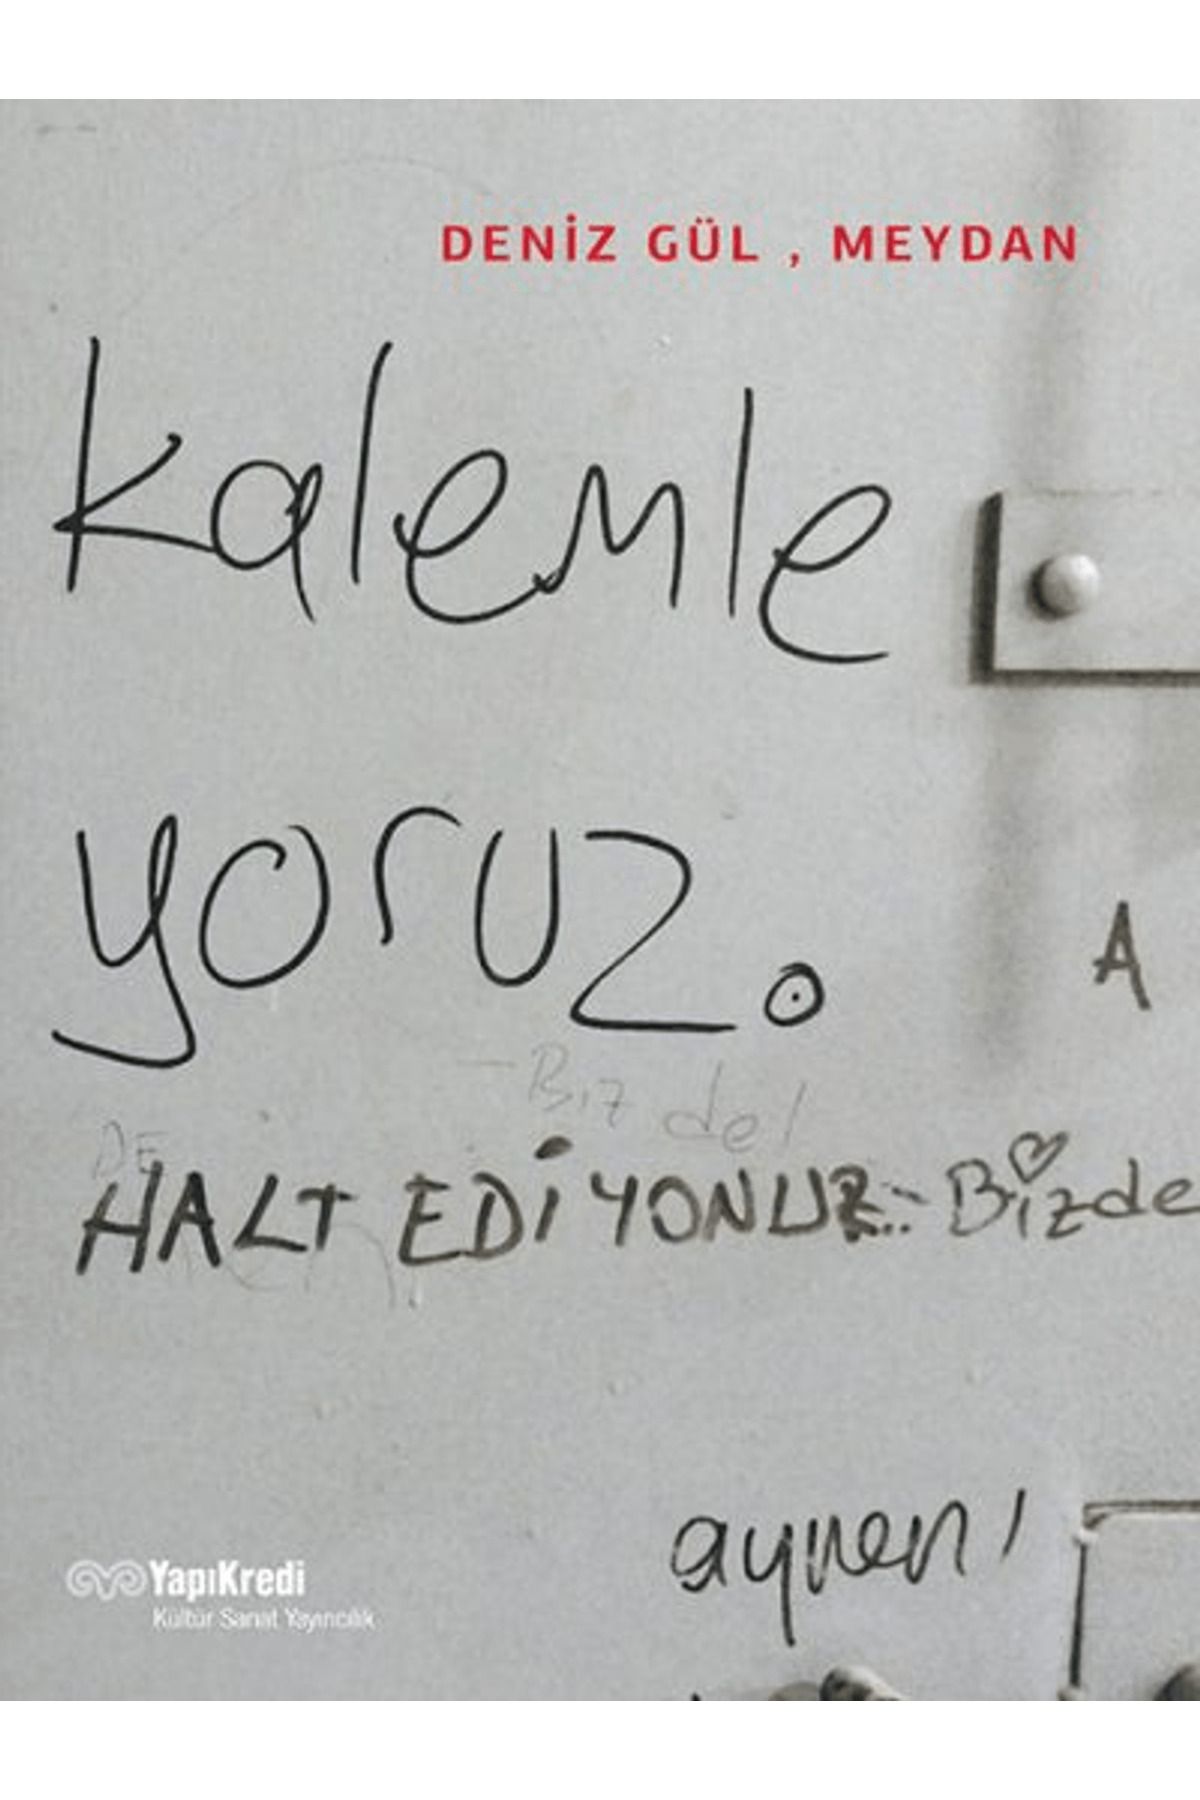 DENİZ GÜL , MEYDAN
kalemle
yoruz.
A
Bizde!
DE
HALT EDİYONUZ.. Bizde
aynen!
YapıKredi
Kültür Sanat Yayıncılık